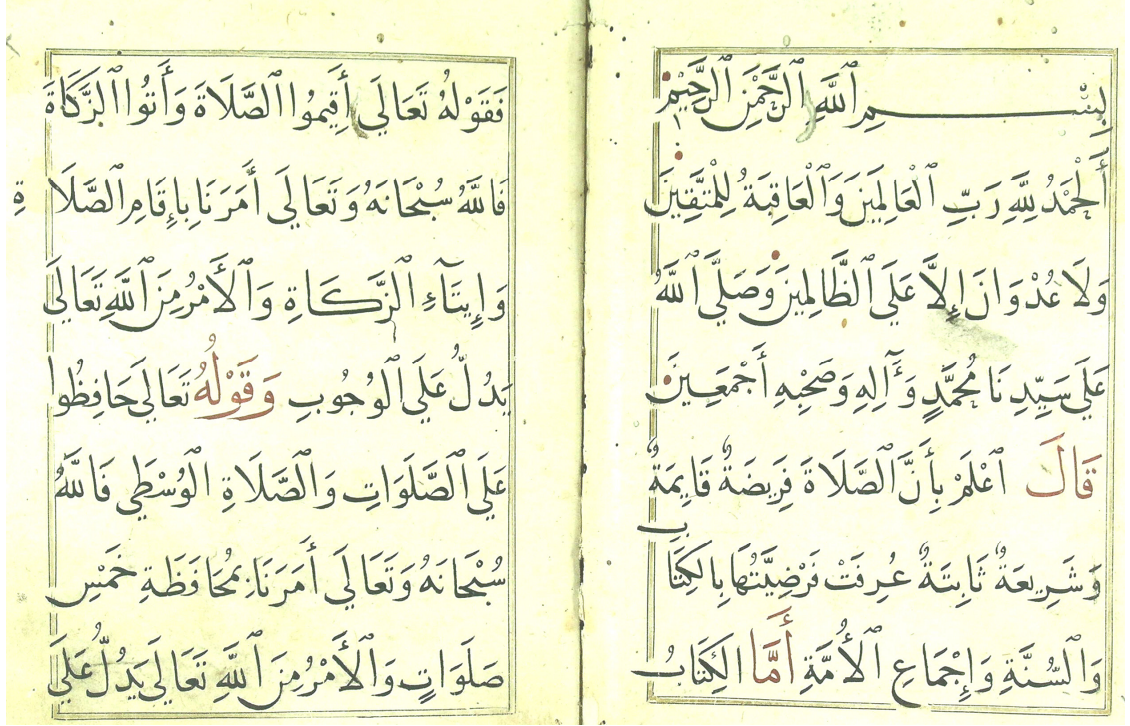 بِسْمِ ٱللَّهِ ٱلرَّحْمٰنِ ٱلرَّحِيْمِ
أَلْحَمْدُ لِلَّهِ رَبِّ ٱلْعَالَمِيْنَ وَٱلْعَاقِبَةُ لِلْمُتَّقِينَ
وَلَا عُدْوَانَ إِلَّا عَلَى ٱلظَّالِمِينَ وَصَلَّى ٱللَّهُ
عَلَى سَيِّدِنَا مُحَمَّدٍ وَءَآلِهِ وَصَحْبِهِ أَجْمَعِينَ
قَالَ ٱعْلَمْ بِأَنَّ ٱلصَّلَاةَ فَرِيضَةٌ قَايِمَةٌ
وَشَرِيعَةٌ ثَابِتَةٌ عُرِفَتْ فَرْضِيَّتُهَا بِالكِتَابِ
وَالسُّنَّةِ وَإِجْمَاعِ ٱلْأُمَّةِ أَمَّا الكِتَابُ
فَقَوْلُهُ تَعَالَى أَقِيمُوا ٱلصَّلَاةَ وَأَتُوا ٱلزَّكَاةَ
فَاللَّهُ سُبْحَانَهُ وَتَعَالَى أَمَرَنَا بِإِقَامِ ٱلصَّلَاةِ
وَإِيتَآءِ ٱلزَّكَاةِ وَٱلْأَمْرُ مِنَ ٱللَّهِ تَعَالَى
يَدُلُّ عَلَى ٱلْوُجُوبِ وَقَوْلُهُ تَعَالَى حَافِظُوا
عَلَى ٱلصَّلَوَاتِ وَٱلصَّلَاةِ ٱلْوُسْطَى فَاللَّهُ
سُبْحَانَهُ وَتَعَالَى أَمَرَنَا بِمُحَافَظَةِ خَمْسِ
صَلَوَاتٍ وَٱلْأَمْرُ مِنَ ٱللَّهِ تَعَالَى يَدُلُّ عَلَى